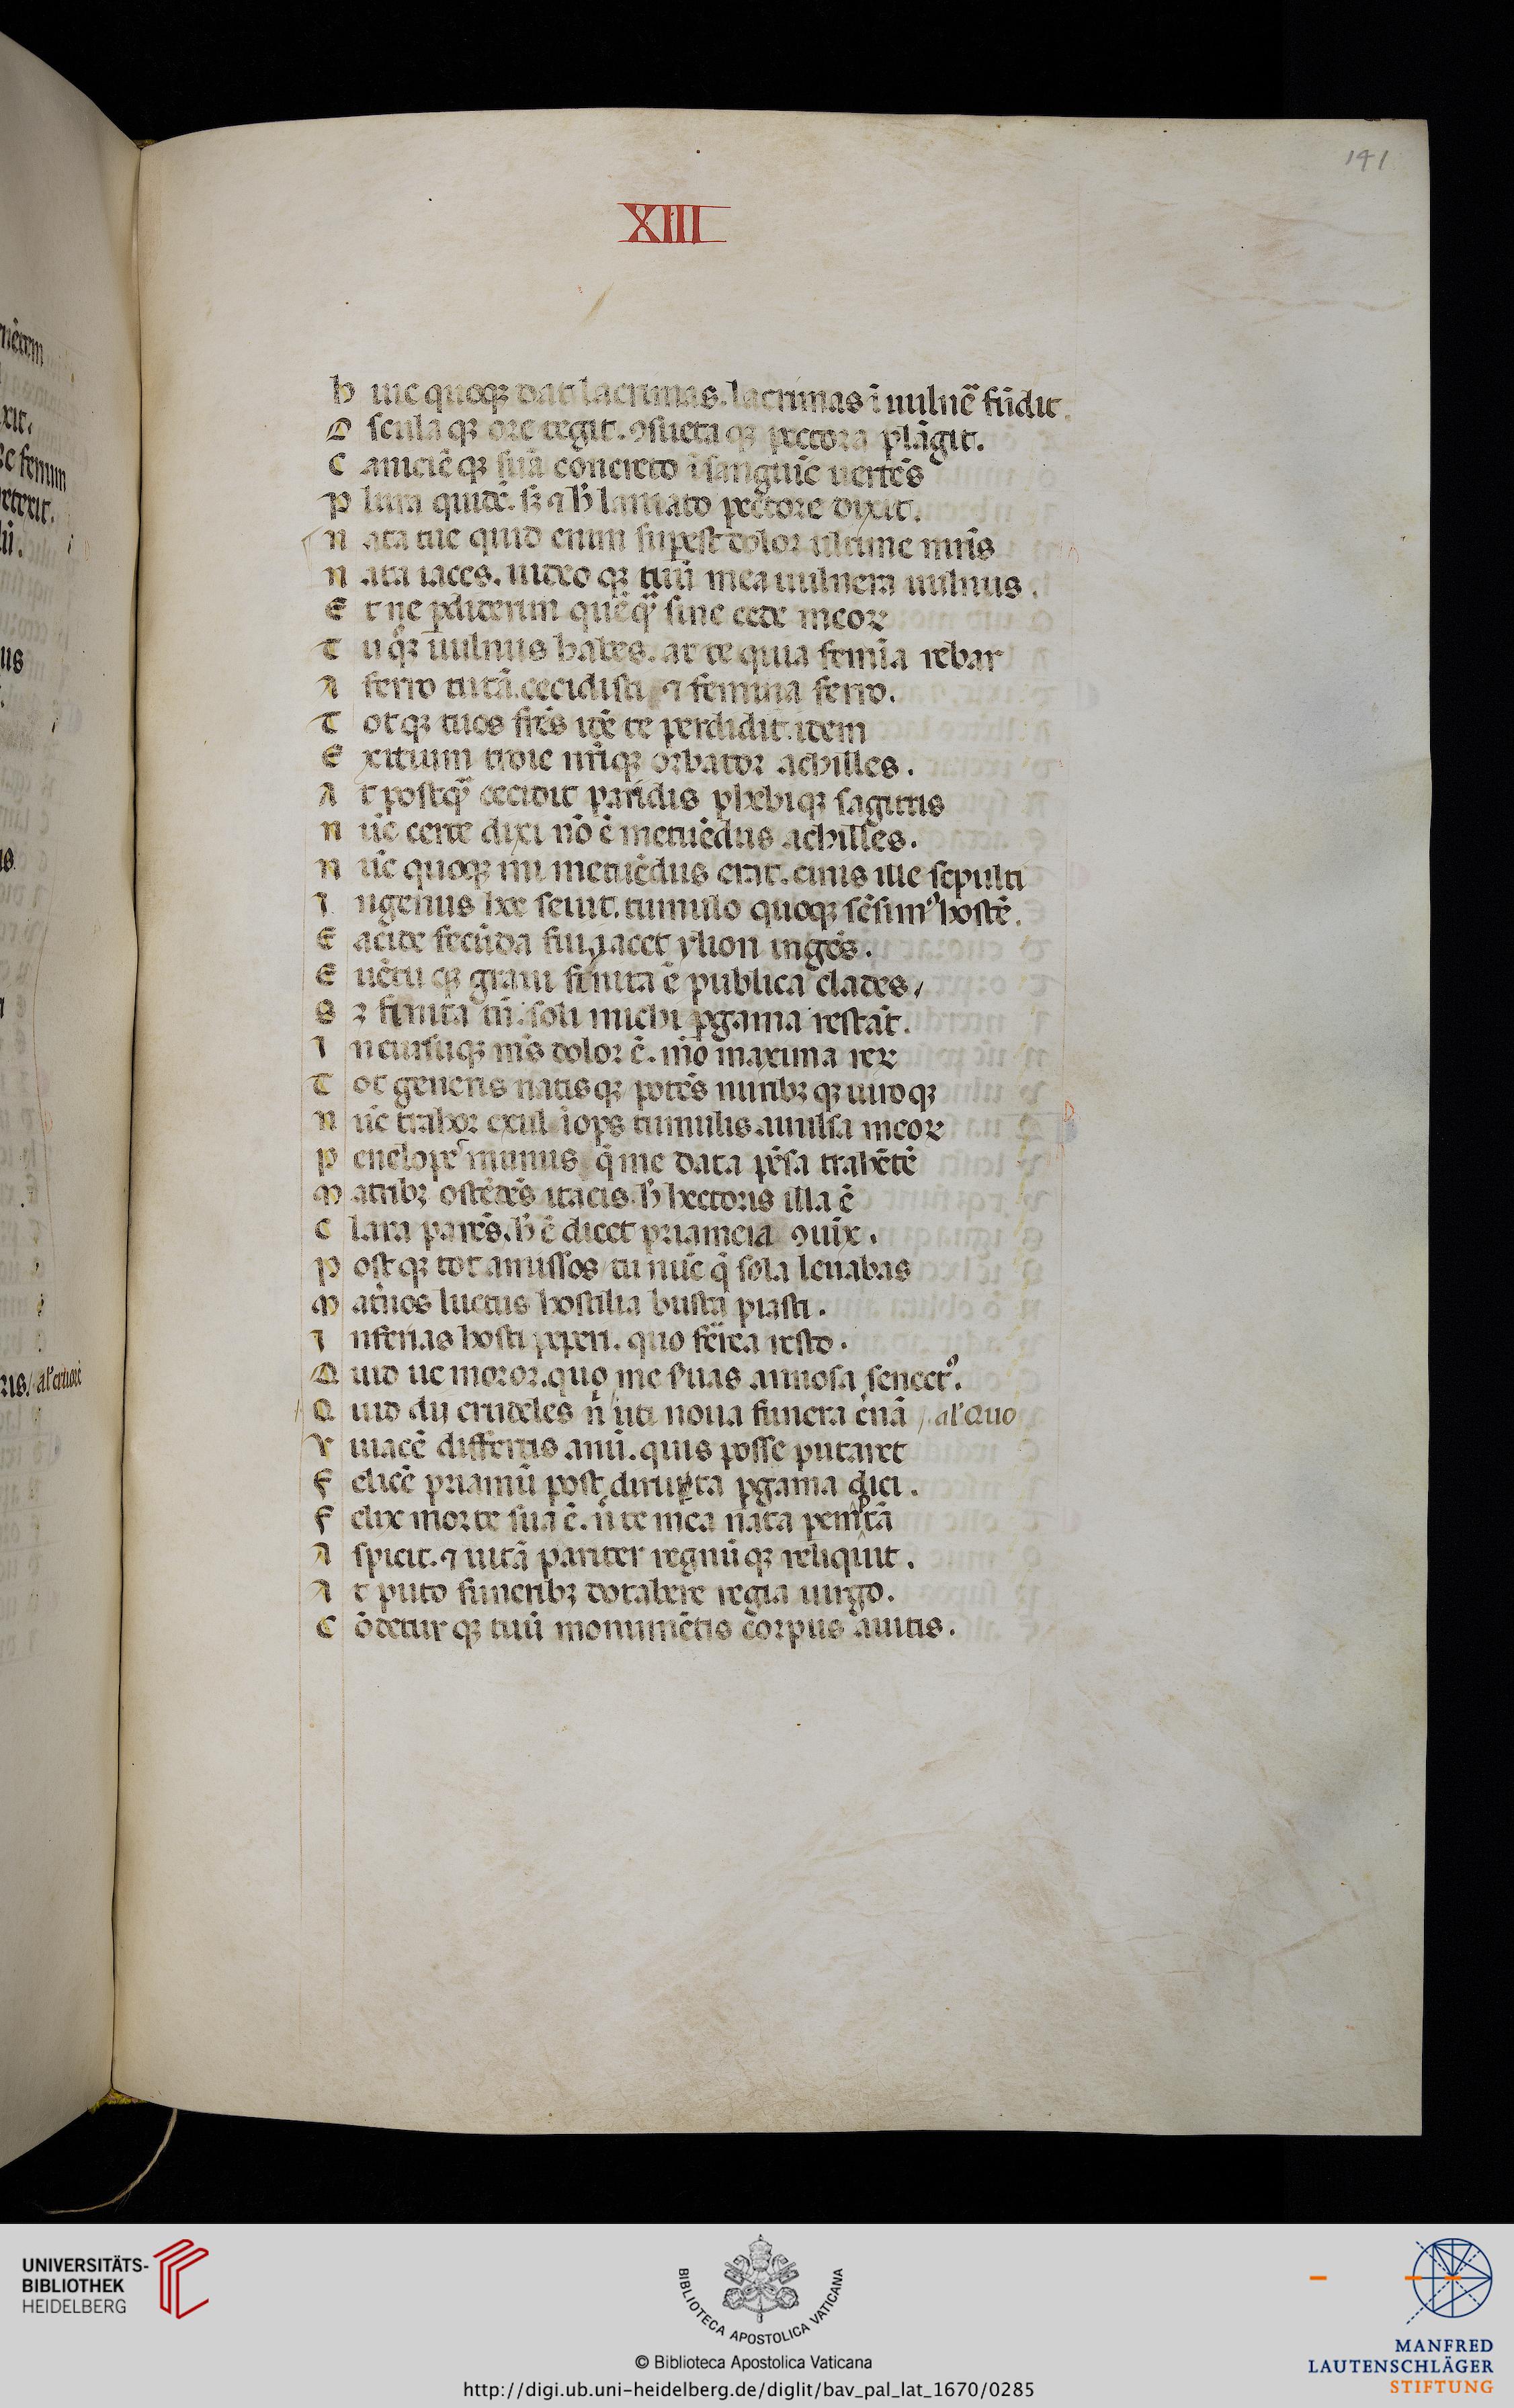 141
XIII
h uic quoqꝫ dat lacrimas. lacrimas ĩ uulnẽ fũdit.
O scula qꝫ ore tegit. ꝯsueta qꝫ pectora plãgit.
C aniciẽ qꝫ suã concreto ĩ sanguĩe uertẽs
P lura quidẽ. sꝫ ⁊ h̃ laniato pectore dixit.
N ata tue quid enim suꝑest dolor ultime mr̃is
N ata iaces. uideo qꝫ tuũ mea uulnera uulnus.
E t ne ꝑdiderim quẽq̃ sine cede meoꝝ
T u q̊ꝫ uulnus habes. at te quia femĩa rebar
A ferro tutã. cecidisti ⁊ femina ferro.
T ot qꝫ tuos fr̃es idẽ te perdidit. idem
E xitium troie nr̃iqꝫ orbator achilles.
A t postq̃ cecidit paridis phebiqꝫ sagittis
N ũc certe dixi nõ ẽ metuẽdus achilles.
N ũc quoqꝫ mi metuẽdus erat. cinis ille sepulti
I n genus hoc seuit. tumulo quoqꝫ sẽsimꝰ hostẽ.
E acide fecũda fui. iacet ylion ingẽs.
E uẽtu qꝫ graui finita ẽ publica clades,
S ꝫ finita tñ. soli michi ꝑgama restãt.
I n cursuqꝫ m̃s dolor ẽ. m̊o maxima reꝝ
T ot generis natisqꝫ potẽs nuribꝫ qꝫ uiro qꝫ
N ũc trahor exul ĩops tumulis auulsa meoꝝ
P enelope munus q̃ me data pẽsa trahẽtẽ
M atribꝫ ostẽdẽs itacis. h̃ hectoris illa ẽ
C lara parẽs. h̃ ẽ dicet priameia ꝯiux.
P ost qꝫ tot amissos tu nũc q̃ sola leuabas
M atnos luctus hostilia busta piasti.
I nferias hosti peperi. quo ferrea resto.
Q uid ue moror. quo me seruas annosa senectꝰ.
Q uid dij crudeles ñ uti noua funera cernã /. al' Quo
V iuacẽ differtis anũ. quis posse putaret
F elicẽ priamũ post diruta ꝑgama dici.
F elix morte sua ẽ. ñ te mea nata perẽptã
A spicit. ⁊ uitã pariter regnũ qꝫ reliquit.
A t puto funeribꝫ dotabere regia uirgo.
C õdetur qꝫ tuũ monumẽtis corpus auitis.
UNIVERSITÄTS-
BIBLIOTHEK
HEIDELBERG
BIBLIOTECA APOSTOLICA VATICANA
© Biblioteca Apostolica Vaticana
http://digi.ub.uni-heidelberg.de/diglit/bav_pal_lat_1670/0285
MANFRED
LAUTENSCHLÄGER
STIFTUNG